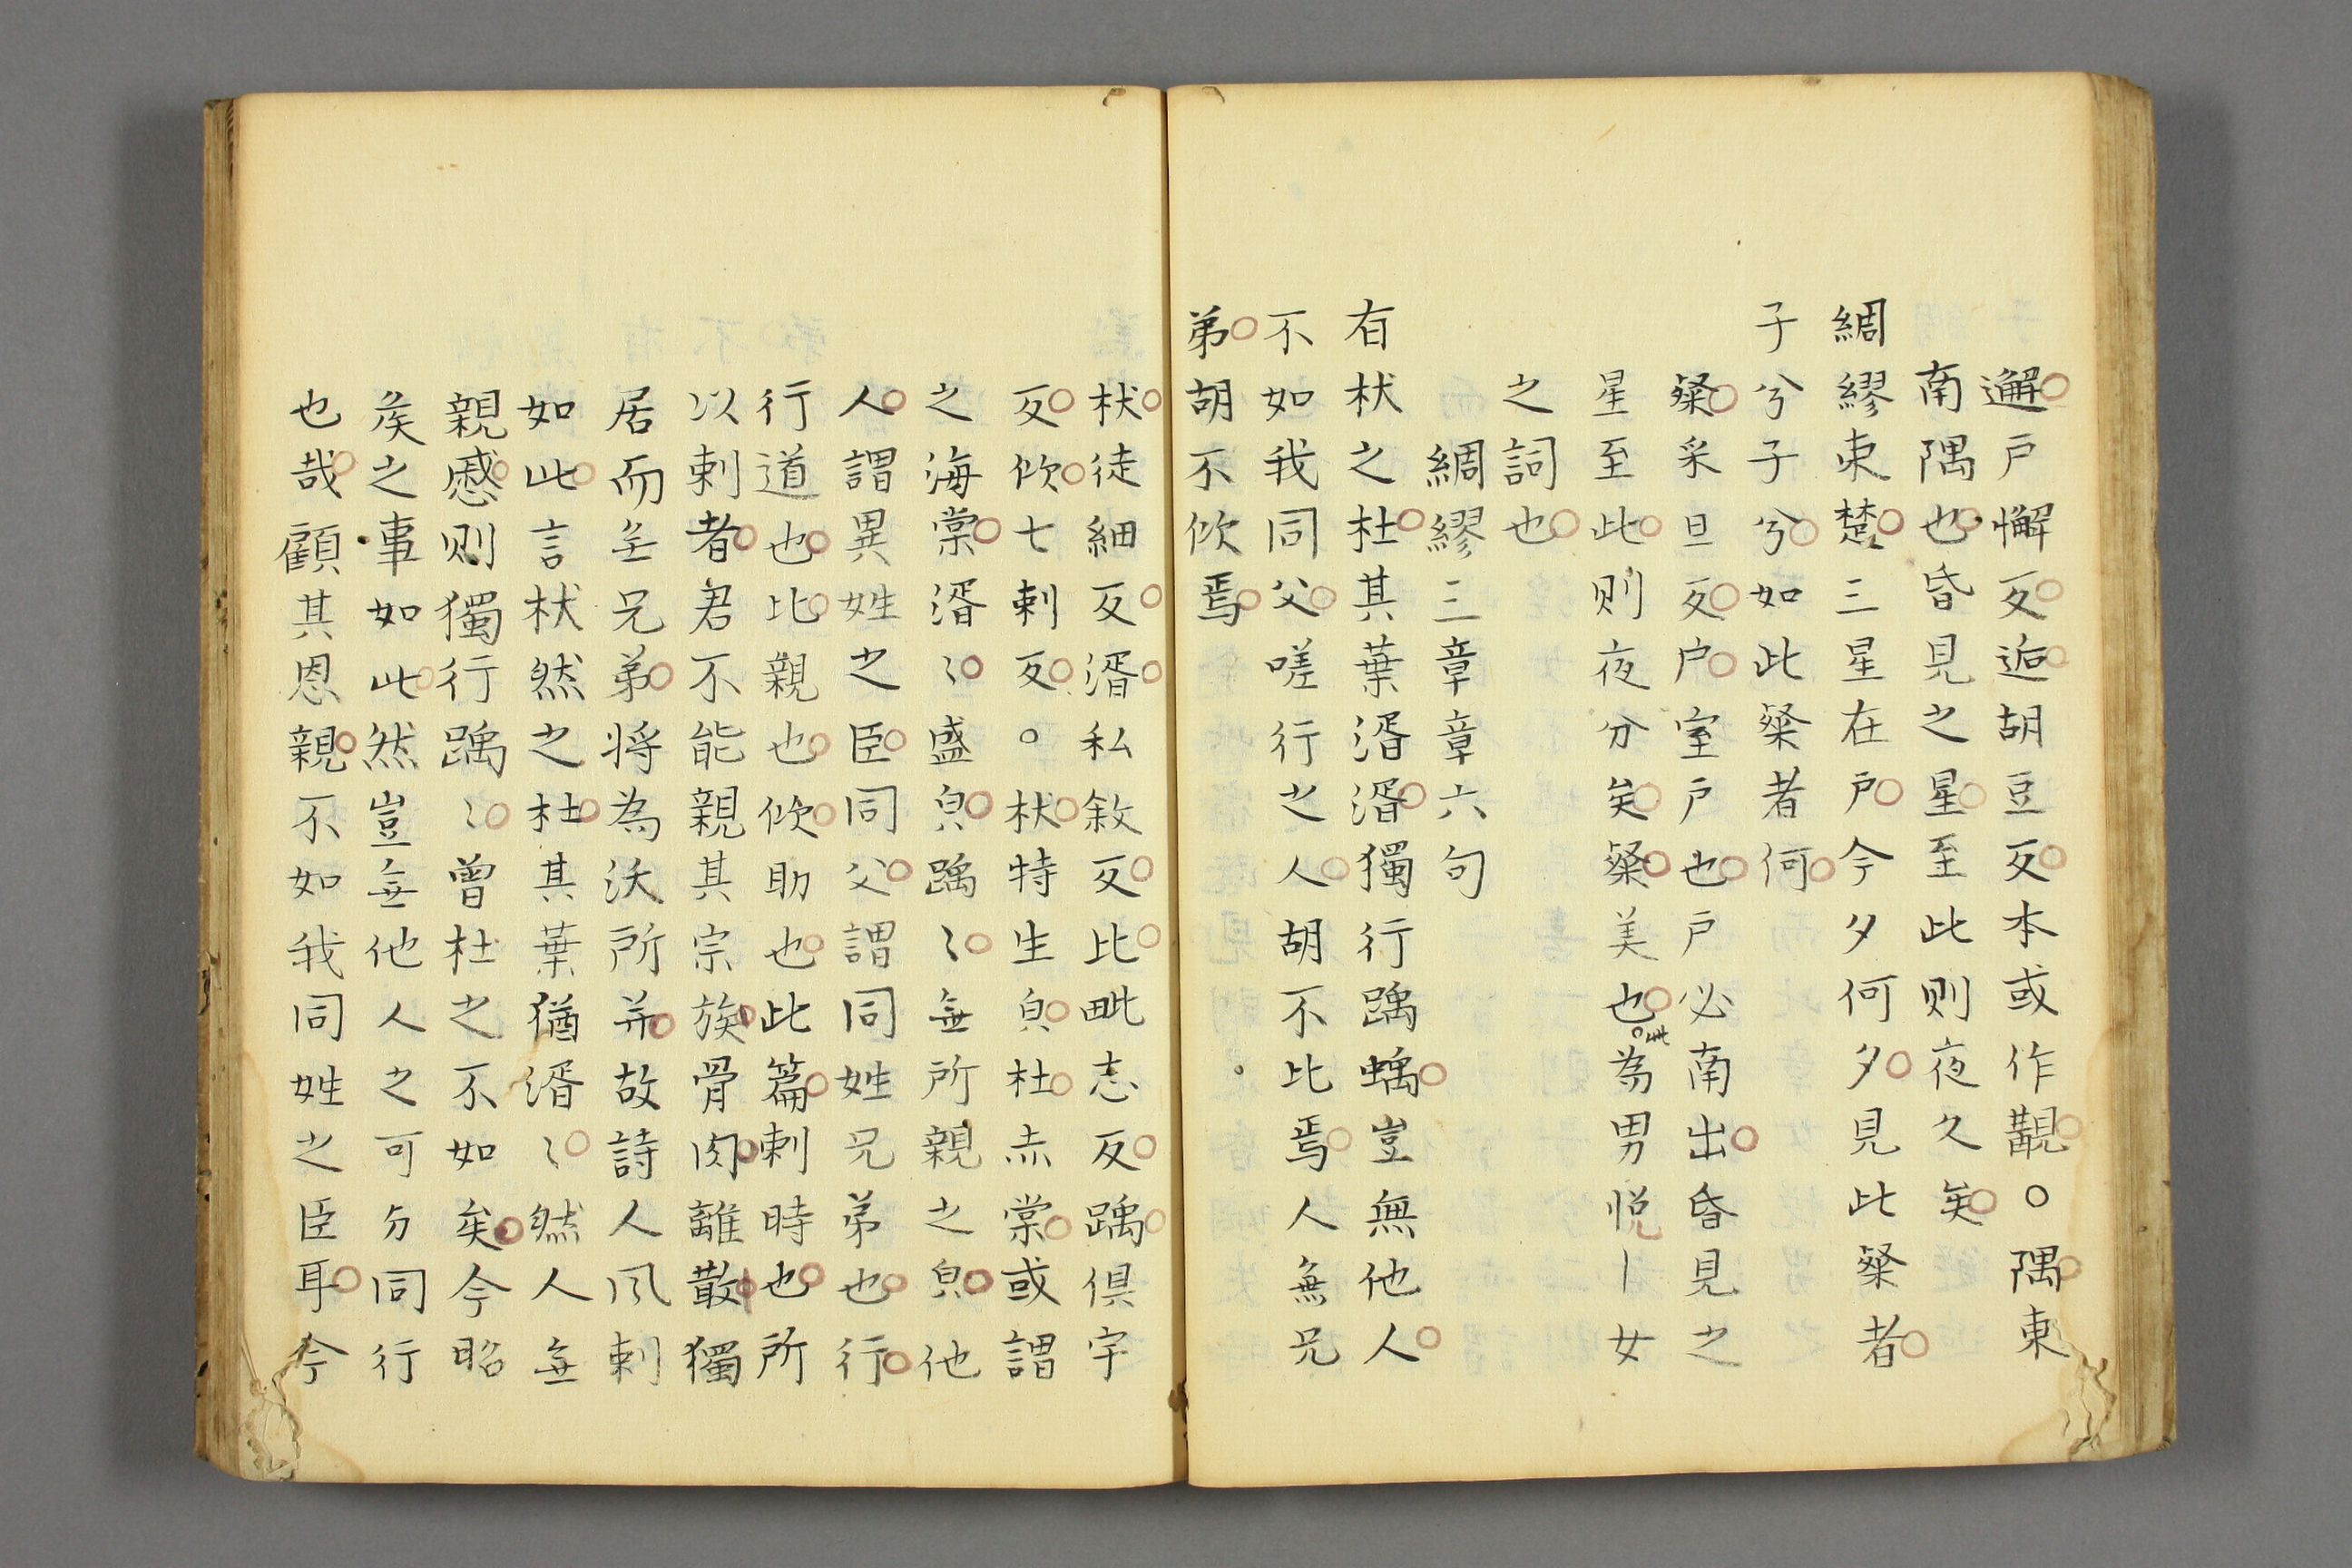 邂戶懈反逅胡豆反本或作覯○隅東
南隅也昏見之星至此則夜久矣
綢繆束楚三星在戶今夕何夕見此粲者
子兮子兮如此粲者何
粲采旦反户室戶也戶必南出昏見之
星至此則夜分矣粲美也此為男悦丨女
之詞也
綢繆三章章六句
有杕之杜其葉湑湑獨行踽踽豈無他人
不如我同父嗟行之人胡不比焉人無兄
弟胡不佽焉
杕徒細反湑私敘反比毗志反踽俱宇
反佽七刺反○杕特生皃杜赤棠或謂
之海棠湑〻盛皃踽〻無所親之皃他
人謂異姓之臣同父謂同姓兄弟也行
行道也比親也佽助也此篇刺時也所
以刺者君不能親其宗族骨肉離散獨
居而无兄弟將為沃所并故詩人風刺
如此言杕然之杜其葉猶湑〻然人無
親慼則獨行踽〻曾杜之不如矣今昭
矦之事如此然豈無他人之可与同行
也哉顧其恩親不如我同姓之臣耳今